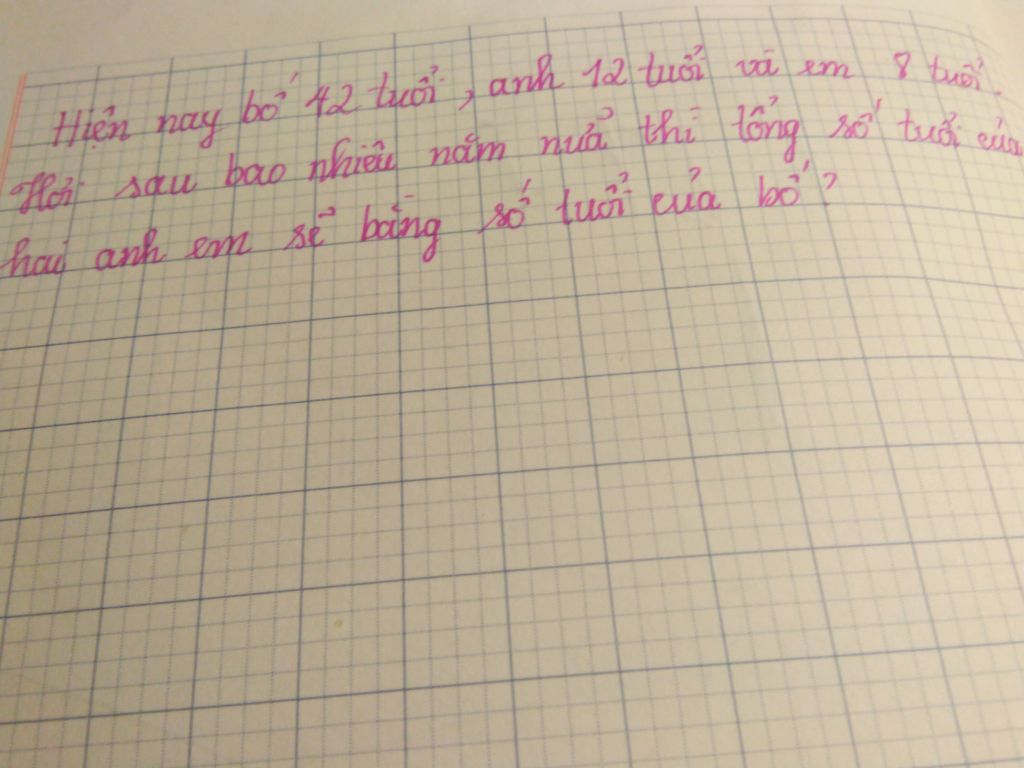 Hiện nay bố 42 tuổi, anh 12 tuổi và em 8 tuổi.
Hỏi sau bao nhiêu năm nưả thì tổng số tuổi của
hai anh em sẽ bằng số tuổi của bố?